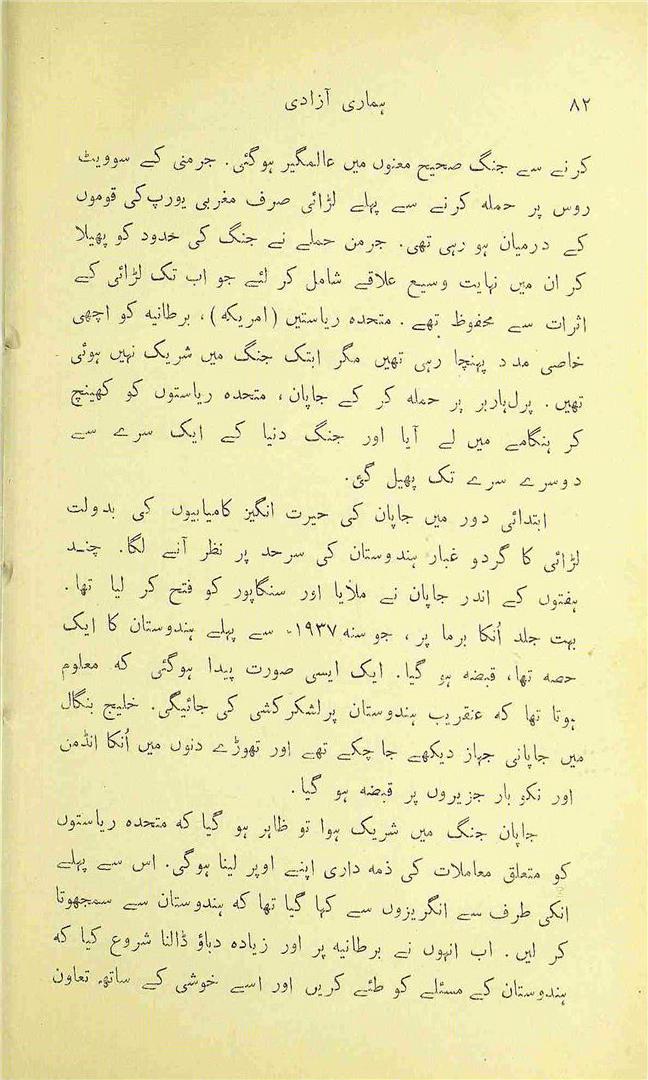 ۸۲ ہماری آزادی
کرنے سے جنگ صحیح معنوں میں عالمگیر ہوگئی۔ جرمنی کے سوویٹ
روس پر حملہ کرنے سے پہلے لڑائی صرف مغربی یورپ کی قوموں
کے درمیان ہو رہی تھی۔ جرمن حملے نے جنگ کی خدود کو پھیلا
کر ان میں نہایت وسیع علاقے شامل کر لئے جو اب تک لڑائی کے
اثرات سے محفوظ تھے۔ متحدہ ریاستیں (امریکہ)، برطانیہ کو اچھی
خاصی مدد پہنچا رہی تھیں مگر ابتک جنگ میں شریک نہیں ہوئی
تھیں۔ پرل ہاربر پر حملہ کر کے جاپان، متحدہ ریاستوں کو کھینچ
کر ہنگامے میں لے آیا اور جنگ دنیا کے ایک سرے سے
دوسرے سرے تک پھیل گئی۔
ابتدائی دور میں جاپان کی حیرت انگیز کامیابیوں کی بدولت
لڑائی کا گردو غبار ہندوستان کی سرحد پر نظر آنے لگا۔ چند
ہفتوں کے اندر جاپان نے ملایا اور سنگاپور کو فتح کر لیا تھا۔
بہت جلد اُنکا برما پر، جو سنہ ۱۹۳۷ء سے پہلے ہندوستان کا ایک
حصہ تھا، قبضہ ہو گیا۔ ایک ایسی صورت پیدا ہوگئی کہ معلوم
ہوتا تھا کہ عنقریب ہندوستان پر لشکر کشی کی جائیگی۔ خلیج بنگال
میں جاپانی جہاز دیکھے جا چکے تھے اور تھوڑے دنوں میں اُنکا انڈمن
اور نکو بار جزیروں پر قبضہ ہو گیا۔
جاپان جنگ میں شریک ہوا تو ظاہر ہو گیا کہ متحدہ ریاستوں
کو متعلق معاملات کی ذمہ داری اپنے اوپر لینا ہوگی۔ اس سے پہلے
انکی طرف سے انگریزوں سے کہا گیا تھا کہ ہندوستان سے سمجھوتا
کر لیں۔ اب انہوں نے برطانیہ پر اور زیادہ دباؤ ڈالنا شروع کیا کہ
ہندوستان کے مسئلے کو طئے کریں اور اسے خوشی کے ساتھ تعاون